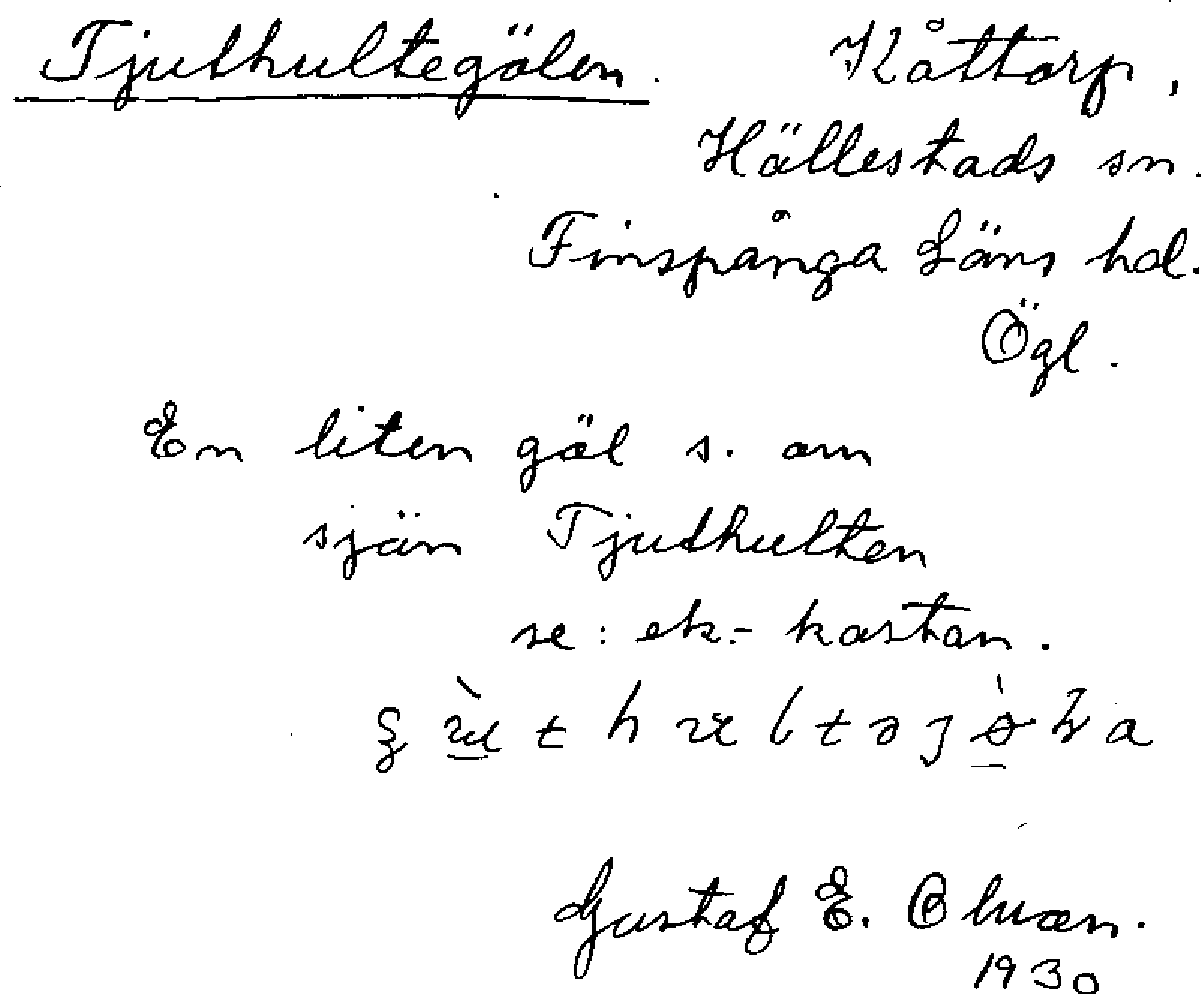 Tjuthultegölen. Kåttorp,
Hällestads sn.
Finspånga Läns hd.
Ögl.
En liten göl s. om
sjön Tjuthulten
se: ek.- kartan.
Gustaf E.
1930